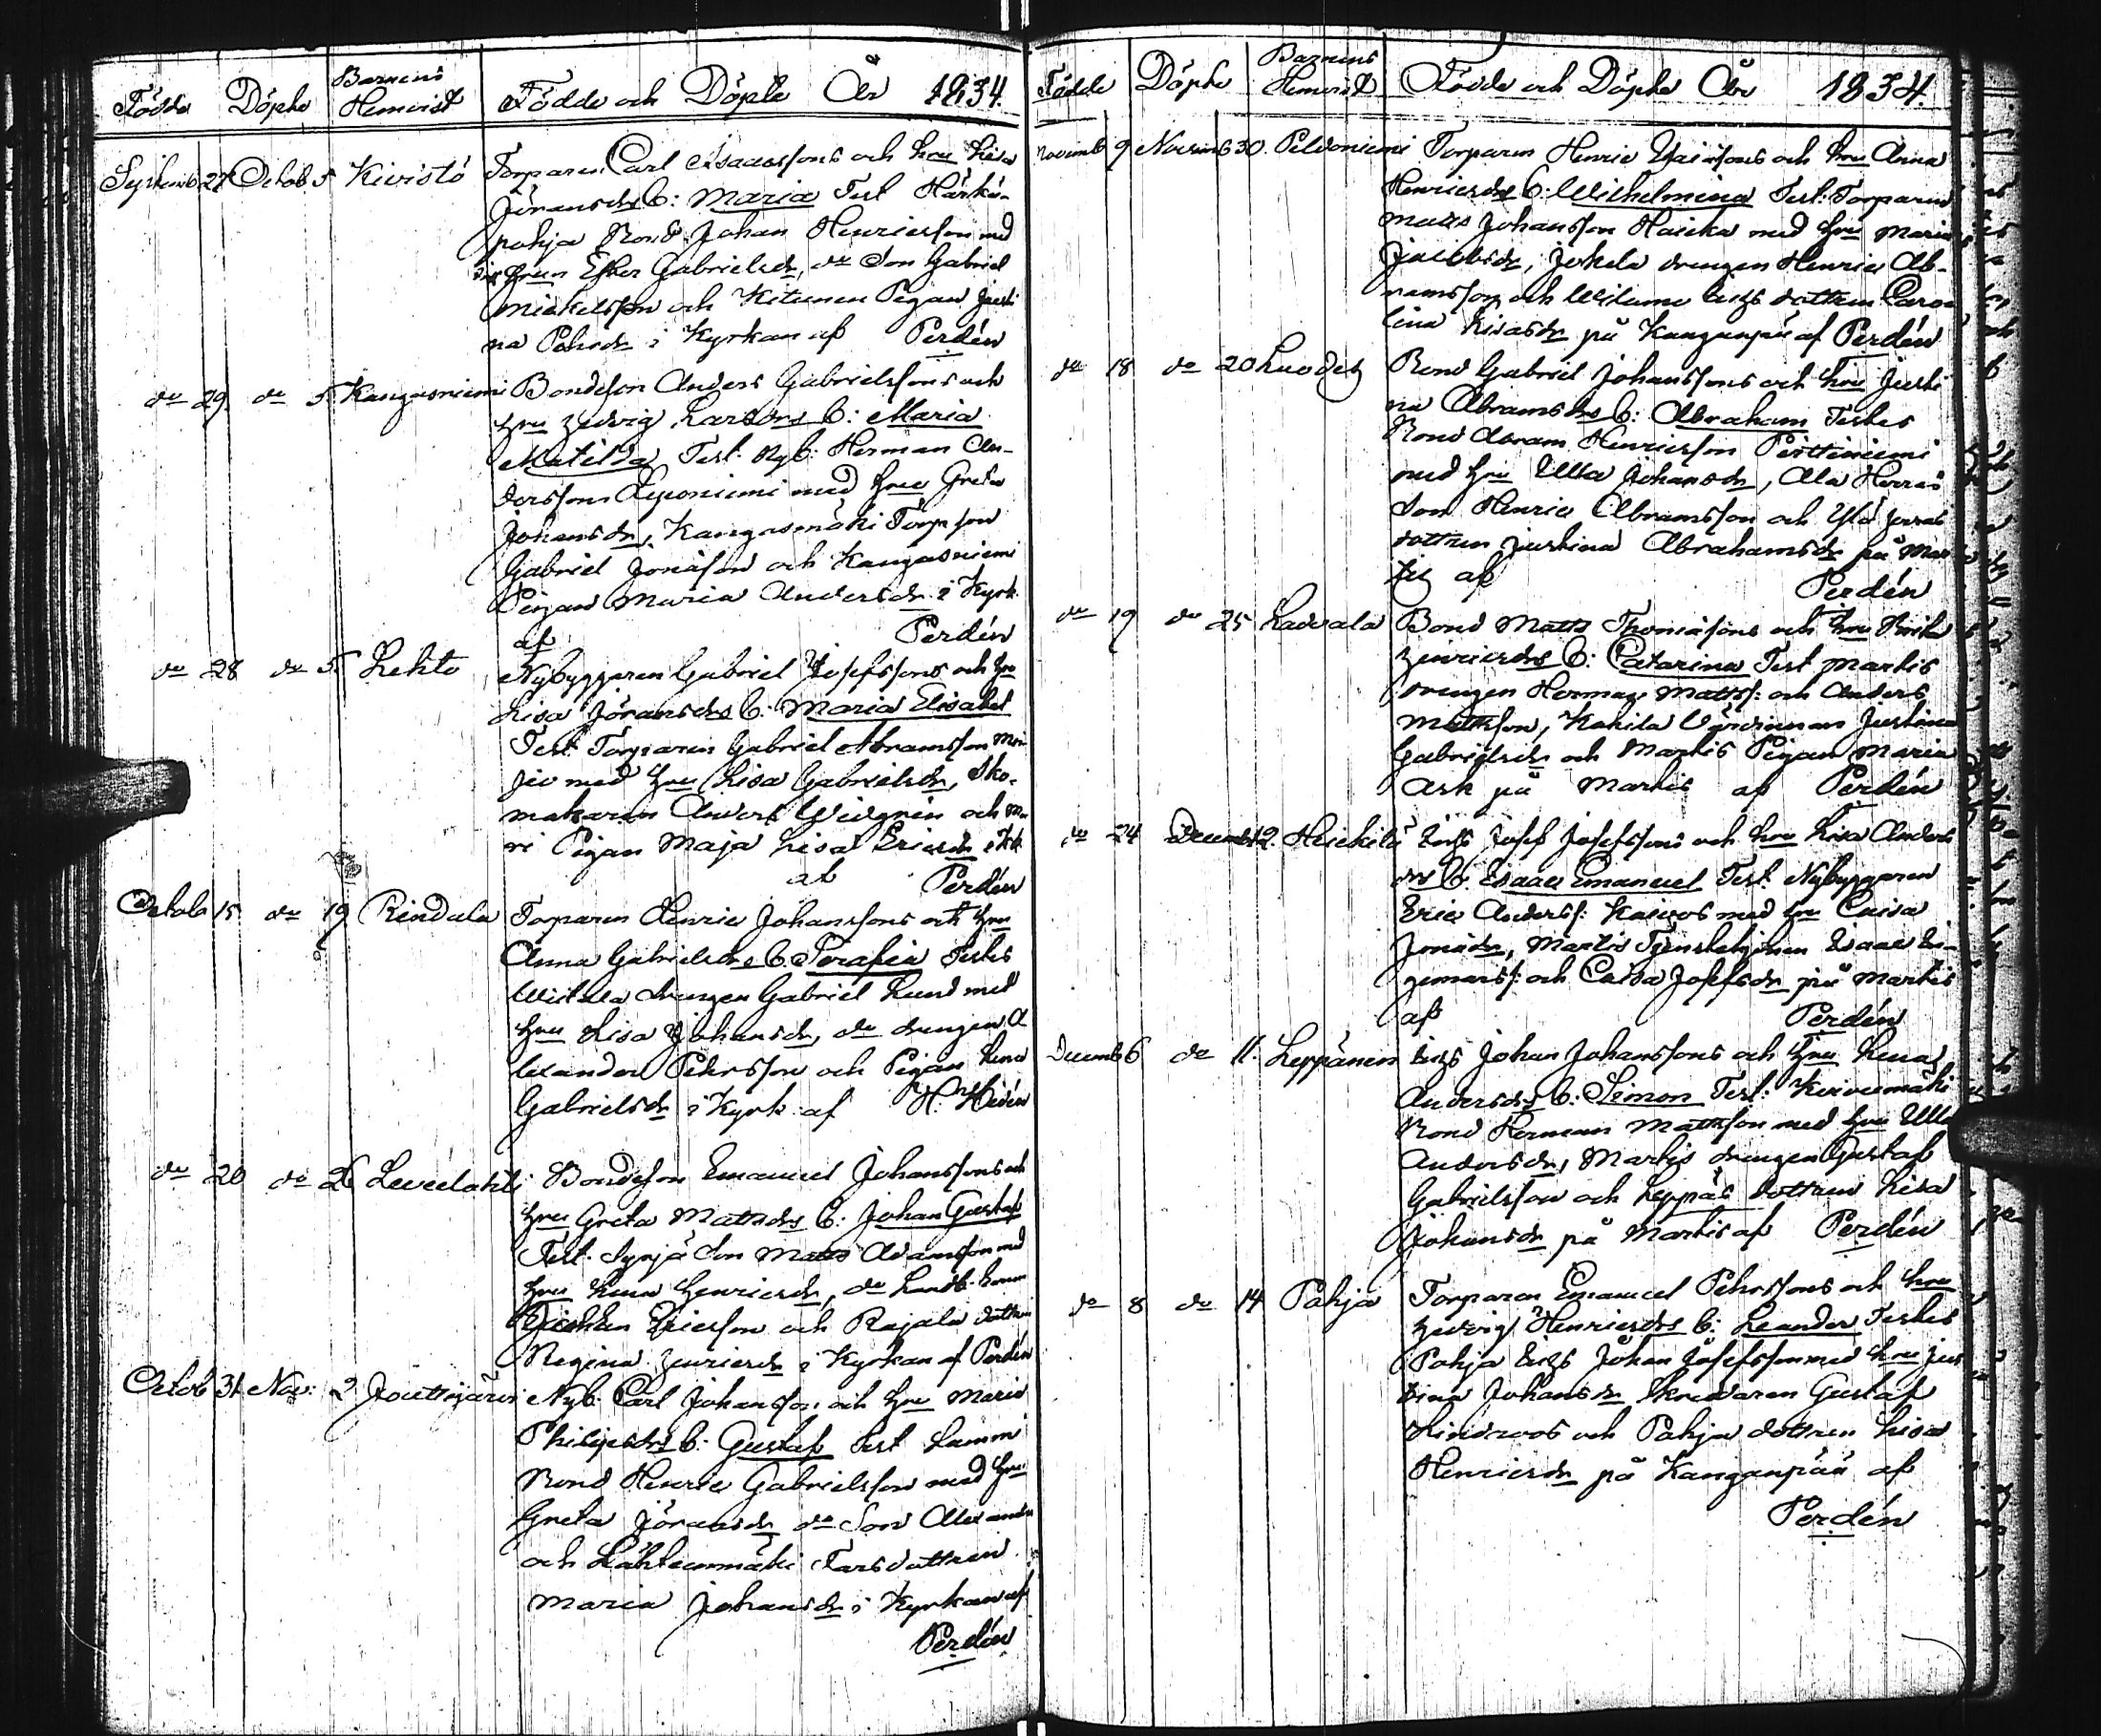 Födde Döpte Barnens Hemvist Födde och Döpte År 1834.
Septemb 27 Octob. 5 Kivistö Torparen Carl Isacssons och hru Lisa
Jöransdrs b: Maria Test Härkö-
pohja Bond. Johan Henricsson med
hrun Ester Gabrielsdr, do Son Gabriel
Mickelsson och Kitunen Pigan Justi
na Pehrsdr i Kyrkan af Perdén
do 29. do 5 Kangasniemi Bondeson Anders Gabrielssons och
hru Hedvig Larsdrs b: Maria
Matilda Test. Nyb: Herman An-
dersson Leponiemi med hru Greta
Johansdr, Kangasmäki Torp son
Gabriel Jonässon och Kangasniemi
Pigan Maria Andersdr i Kyrk.
af Perdén
do 28 do 5 Lehto Nybyggaren Gabriel Josefssons och hru
Lisa Jöransdrs b: Maria Elisabet
Test: Torparen Gabriel Abramsson
med hru Lisa Gabrielsdr, Sko-
makaren Anders Widgrén och
Pigan Maja Lisa Ericsdr
af Perdén
Octob 15 do 19 Rindala Torparen Henric Johanssons och hru
Anna Gabrielsdrs b. Serafia Testes
drengen Gabriel Lund med
hru Lisa Johansdr, do drengen A
lexander Pehrsson och Pigan Lena
Gabrielsdr i Kyrk: af H: Hedén
do 20 do 26 Leveelahti Bondeson Emanuel Johanssons och
hru Greta Mattsdrs b: Johan Gustaf
Test. Syrjä Son Matts Adamsson med
hru Lena Henricsdr, do
Ericsson och Rajala dottren
Regina Henricsdr i Kyrkan af Perdén
Octob 31 Nov: 2 Jouttijärvi Nyb: Carl Johansson och hru Maria
Philipsdrs b. Gustaf Test Lamm
Bond Henric Gabrielsson med hru
Greta Jöransdr do Son Alexander
och Lähteenmäki dottren
Maria Johansdr i Kyrkan af
Perdén
Födde Döpte Barnens Hemvist Födde och Döpte År 1834.
Novemb 9 Novemb 30. Peldoniemi Torparen Henric Isaacssons och hru Anna
Henricsdrs b: Wilhelmina Test: Torparen
Matts Johansson Haicka med hru Maria
Jacobsdr, Jokela drengen Henric Ab-
ramsson och dottren Caro
lina Isacsdr på Kanganpää af Perdén
do 18 do 20 Luodes Bond Gabriel Johanssons och hru Justi
na Abramsdrs b: Abraham Testes
Bond Abram Henricsson Perttiniemi
med hru Ulla Johansdr, Ala Herrais
Son Henric Abramsson och Ylä
dottren Justina Abrahamsdr på Mar
tis af Perdén
do 19 do 25 Ladvala Bond Matts Thomässons och hru Brita
Henricsdrs b: Catarina Test Martis
drengen Herman Matts: och Anders
Mattsson, Kokila Värdinnan Justina
Gabrielsdr och Martis Pigan Maria
Ask på Martis af Perdén
do 24 Decemb 2. Heickilä Josef Josefssons och hru Lisa Anders
drs b. Isaac Emanuel Test. Nybyggaren
Eric Anderss: Kaivos med hru Caisa
Jonädr, Martis Isaac In-
gemars: och Caisa Josefsdr på Martis
af Perdén
Decemb 6 do 11. Leppänen Johan Johanssons och hru Lena
Andersdrs b: Simon Test: Keivumäki
Bond Herman Mattsson med hru Ulla
Andersdr, Martis drengen Gustaf
Gabrielsson och Leppäs dottren Lisa
Johansdr på Martis af Perdén
do 8 do 14 Pahja Torparen Emanuel Pehrssons och hru
Hedvig Henricsdrs b: Leander Testes
Pahja Johan Josefsson med hru Jus
tina Johansdr Skredaren Gustaf
Lindroos och Pahja dottren Lisa
Henricsdr på Kanganpää af
Perdén